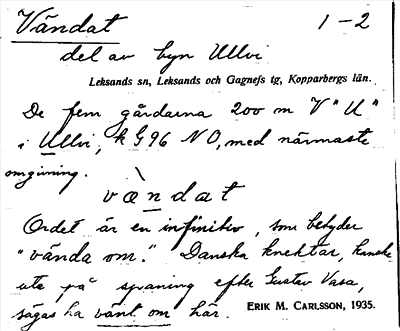 Vändat 1-2
del av byn Ullvi
Leksands sn, Leksands och Gagnefs tg, Kopparbergs län.
De fem gårdarna 200 m V "U"
i Ullvi, k G96 NO, med närmaste
omgivning.
væ̀ndat
Ordet är en infinitiv, som betyder
"vända om." Danska knektar, kanske
ute på spaning efter Gustav Vasa,
sägas ha vänt om här. ERIK M. CARLSSON, 1935.